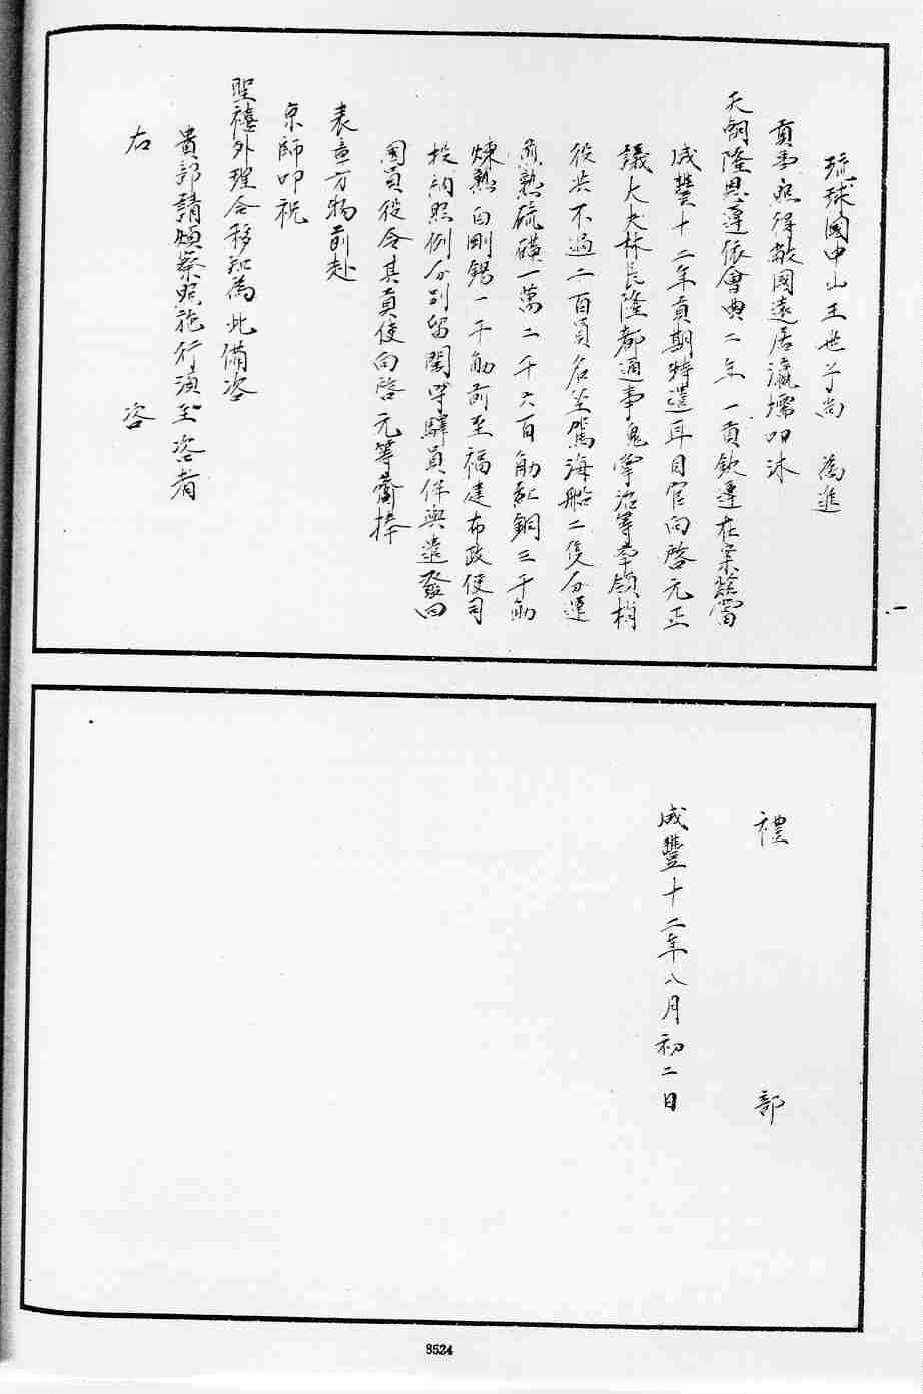 琉球國中山王世子尚　為進
貢事照得敝國遠居瀛壖叩沐
天朝隆恩遵依會典二年一貢欽遵在案茲當
咸豐十二年貢期特遣耳目官向啓元正
議大夫林長隆都通事鬼掌治等率領梢
役共不過二百員名坐駕海船二隻分運
煎熟硫磺一萬二千六百觔紅銅三千觔
煉熟白剛錫一千觔前至福建布政使司
投納照例分別留閩守驛員伴與遣發回
國員役令其貢使向啓元等齎捧
表章方物前赴
京師叩祝
聖禧外理合移知為此備咨
貴部請煩察照施行須至咨者
右　咨
禮　部
咸豐十二年八月初二日
8524